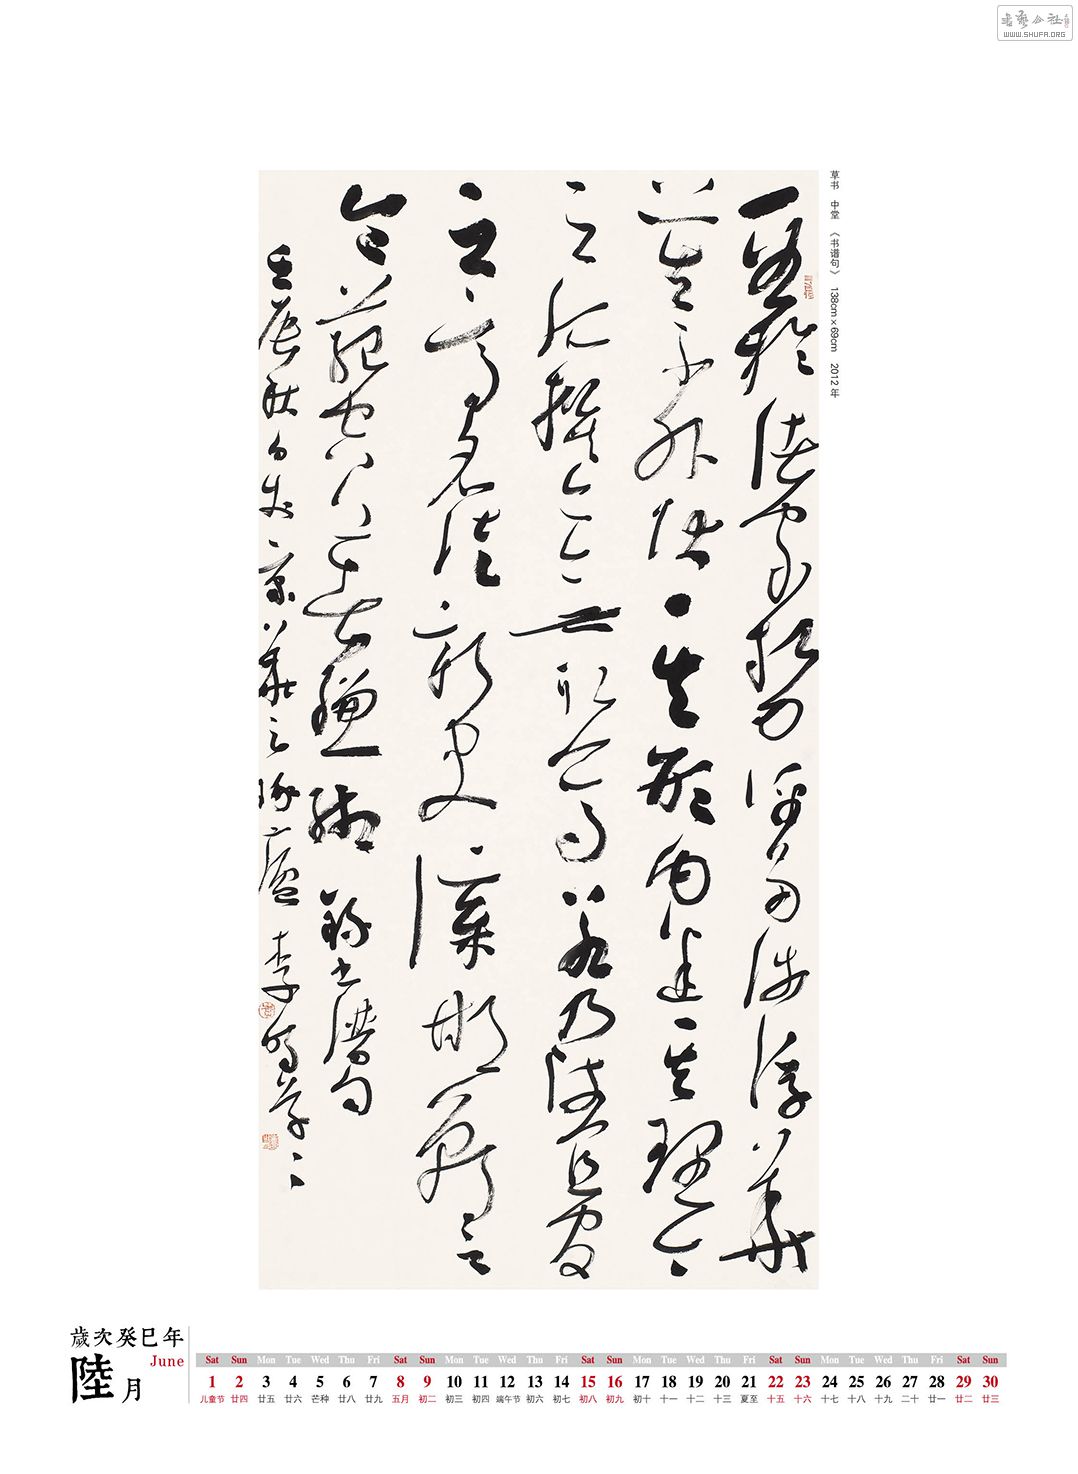 書艺公社
WWW.SHUFA.ORG
草书 中堂 《书谱句》 138cm×69cm 2012年
至於諸家勢評多涉浮華
莫不外狀其形內迷其理今
之所撰亦無取焉若乃師宜官
之高名徒彰史牒邯鄲淳之
令範空著縑緗 錄書譜句
壬辰秋 京華之 李
歲次癸巳年
陸月 June
Sat Sun Mon Tue Wed Thu Fri Sat Sun Mon Tue Wed Thu Fri Sat Sun Mon Tue Wed Thu Fri Sat Sun Mon Tue Wed Thu Fri Sat Sun
1 2 3 4 5 6 7 8 9 10 11 12 13 14 15 16 17 18 19 20 21 22 23 24 25 26 27 28 29 30
儿童节 廿四 廿五 廿六 芒种 廿八 廿九 五月 初二 初三 初四 端午节 初六 初七 初八 初九 初十 十一 十二 十三 夏至 十五 十六 十七 十八 十九 二十 廿一 廿二 廿三